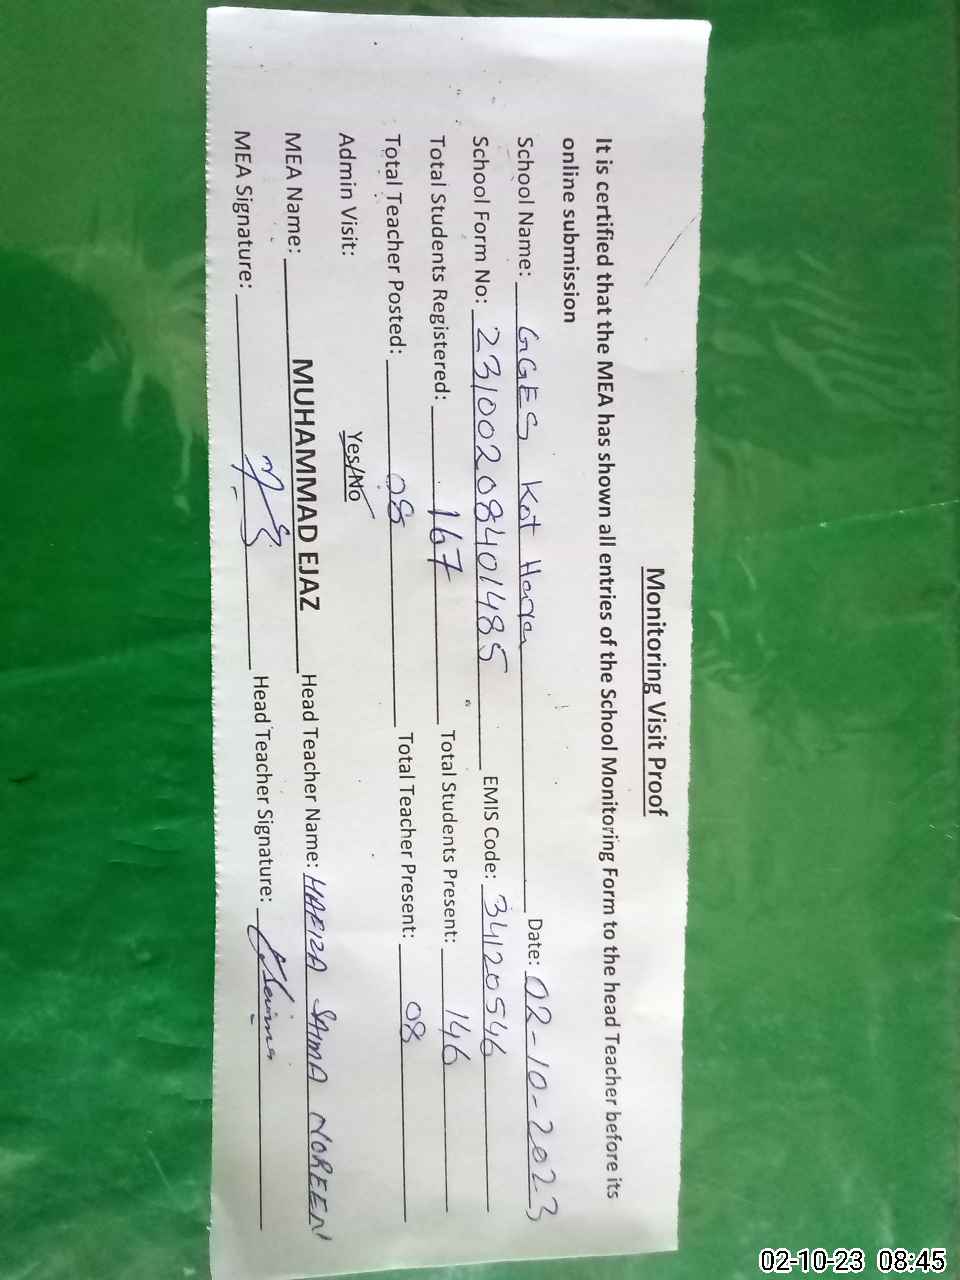 Monitoring Visit Proof
It is certified that the MEA has shown all entries of the School Monitoring Form to the head Teacher before its
online submission
School Name: GGES Kot Date: 02-10-2023
School Form No: 23100208401485 EMIS Code: 34120546
Total Students Registered: 167 Total Students Present: 146
Total Teacher Posted: 08 Total Teacher Present: 08
Admin Visit: Yes/No
MEA Name: MUHAMMAD EJAZ Head Teacher Name: HAFIZA SAIMA NOREEN
MEA Signature: Head Teacher Signature:
02-10-23 08:45